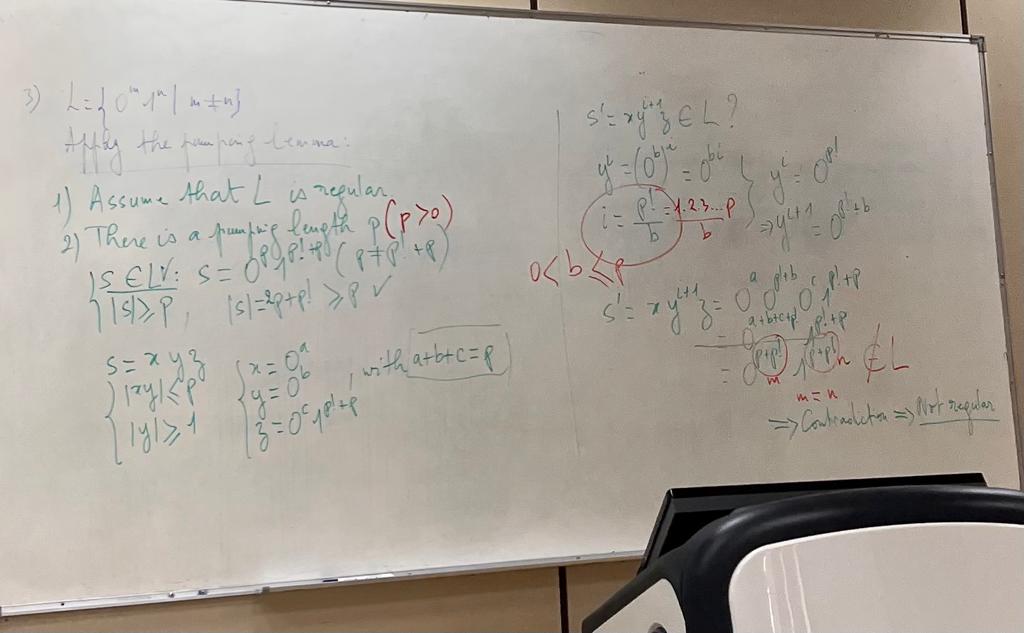 3) L={0ᵐ1ⁿ | m≠n}
Apply the pumping lemma:
1) Assume that L is regular.
2) There is a pumping length p (p>0)
s ∈ L ✓: s = 0ᵖ1ᵖ!⁺ᵖ (p≠p!+p)
|s|≥p, |s|=2p+p! ≥p ✓
s = x y z
|xy|≤p
|y|≥1
x = 0ᵃ
y = 0ᵇ
z = 0ᶜ1ᵖ!⁺ᵖ
, with a+b+c=p
s' = xyⁱ⁺¹z ∈ L?
yⁱ = (0ᵇ)ⁱ = 0ᵇⁱ } yⁱ = 0ᵖ!
i = p!/b = 1.2.3...p/b ⇒ yⁱ⁺¹ = 0ᵖ!⁺ᵇ
0<b≤p
s' = xyⁱ⁺¹z = 0ᵃ0ᵖ!⁺ᵇ0ᶜ1ᵖ!⁺ᵖ
= 0ᵃ⁺ᵇ⁺ᶜ⁺ᵖ! 1ᵖ!⁺ᵖ
= 0ᵖ⁺ᵖ! 1ᵖ⁺ᵖ! ∉ L
m n
m = n
⇒ Contradiction ⇒ Not regular